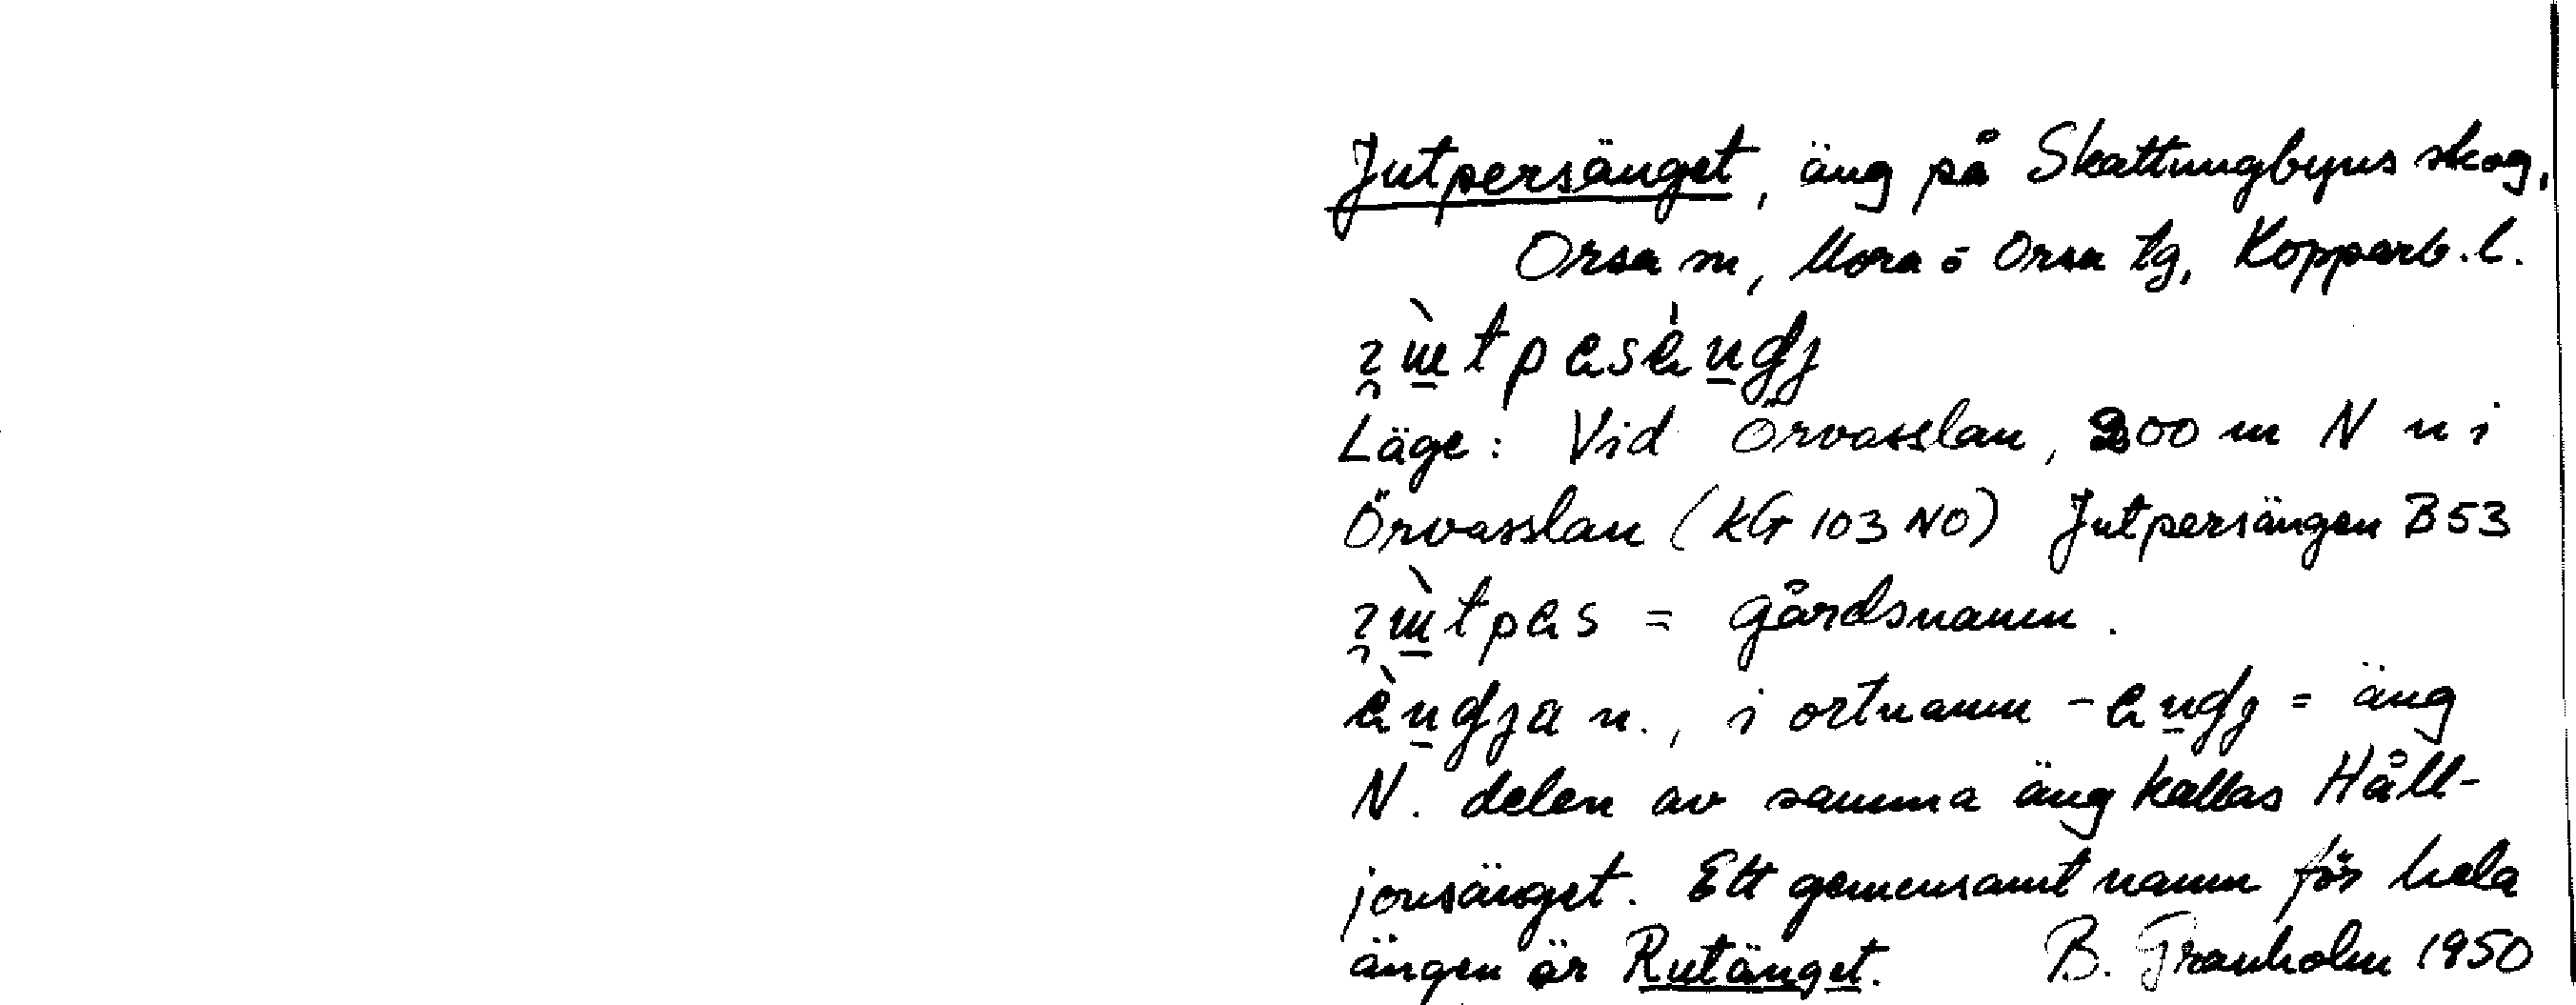 Jutpersänget, äng på Skattungbyns skog,
Orsa sn, Mora o Orsa tg, Kopparb. l.
Läge: Vid Örvasslan, 200 m N n i
Örvasslan (kG 103 NO) Jutpersängen B53
= gårdsnamn.
n., i ortnamn = äng
N. delen av samma äng kallas Håll-
jonsänget. Ett gemensamt namn för hela
ängen är Rutänget. B. Granholm 1950